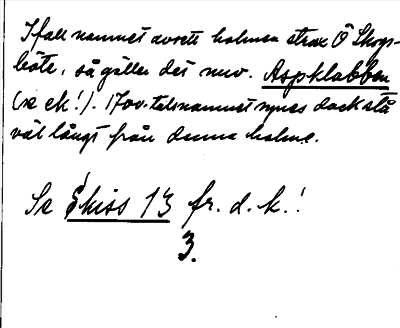 Ifall namnet avsett holmen strax Ö Skogs-
böte, så gäller det nuv. Aspklobben
(se ek!). 1700-talsnamnet synes dock stå
väl långt från denna holme.
Se Skiss 13 fr. d. k.!
3.